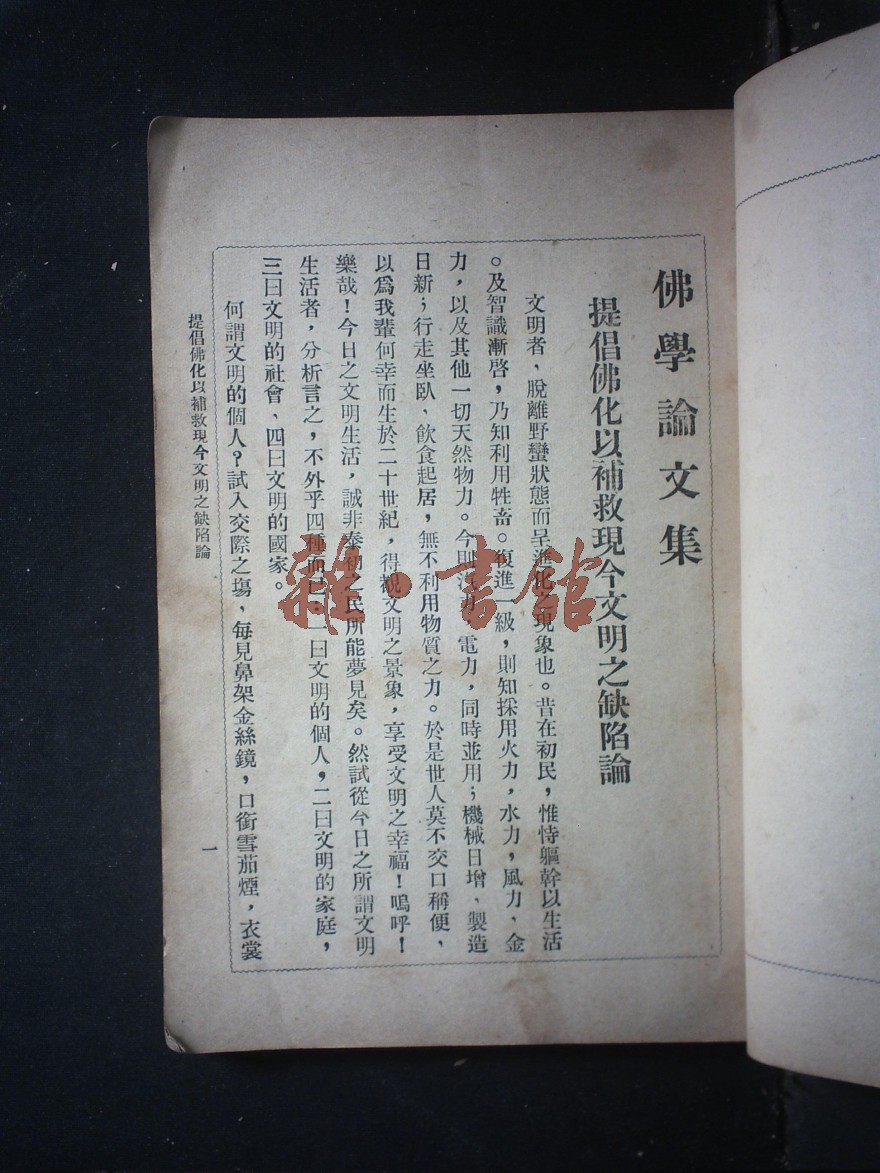 佛學論文集
提倡佛化以補救現今文明之缺陷論
文明者、脫離野蠻狀態而呈進化之現象也。昔在初民，惟恃軀幹以生活
。及智識漸啓，乃知利用牲畜。復進一級，則知採用火力，水力，風力、金
力，以及其他一切天然物力。今則汽力、電力，同時並用；機械日增、製造
日新；行走坐臥、飲食起居，無不利用物質之力。於是世人莫不交口稱便，
以爲我輩何幸而生於二十世紀，得觀文明之景象，享受文明之幸福！嗚呼！
樂哉！今日之文明生活，誠非泰初之民所能夢見矣。然試從今日之所謂文明
生活者，分析言之，不外乎四種而已、一曰文明的個人，二曰文明的家庭，
三曰文明的社會、四曰文明的國家。
何謂文明的個人？試入交際之塲，每見鼻架金絲鏡，口銜雪茄煙，衣裳
提倡佛化以補救現今文明之缺陷論
一
雜·書館